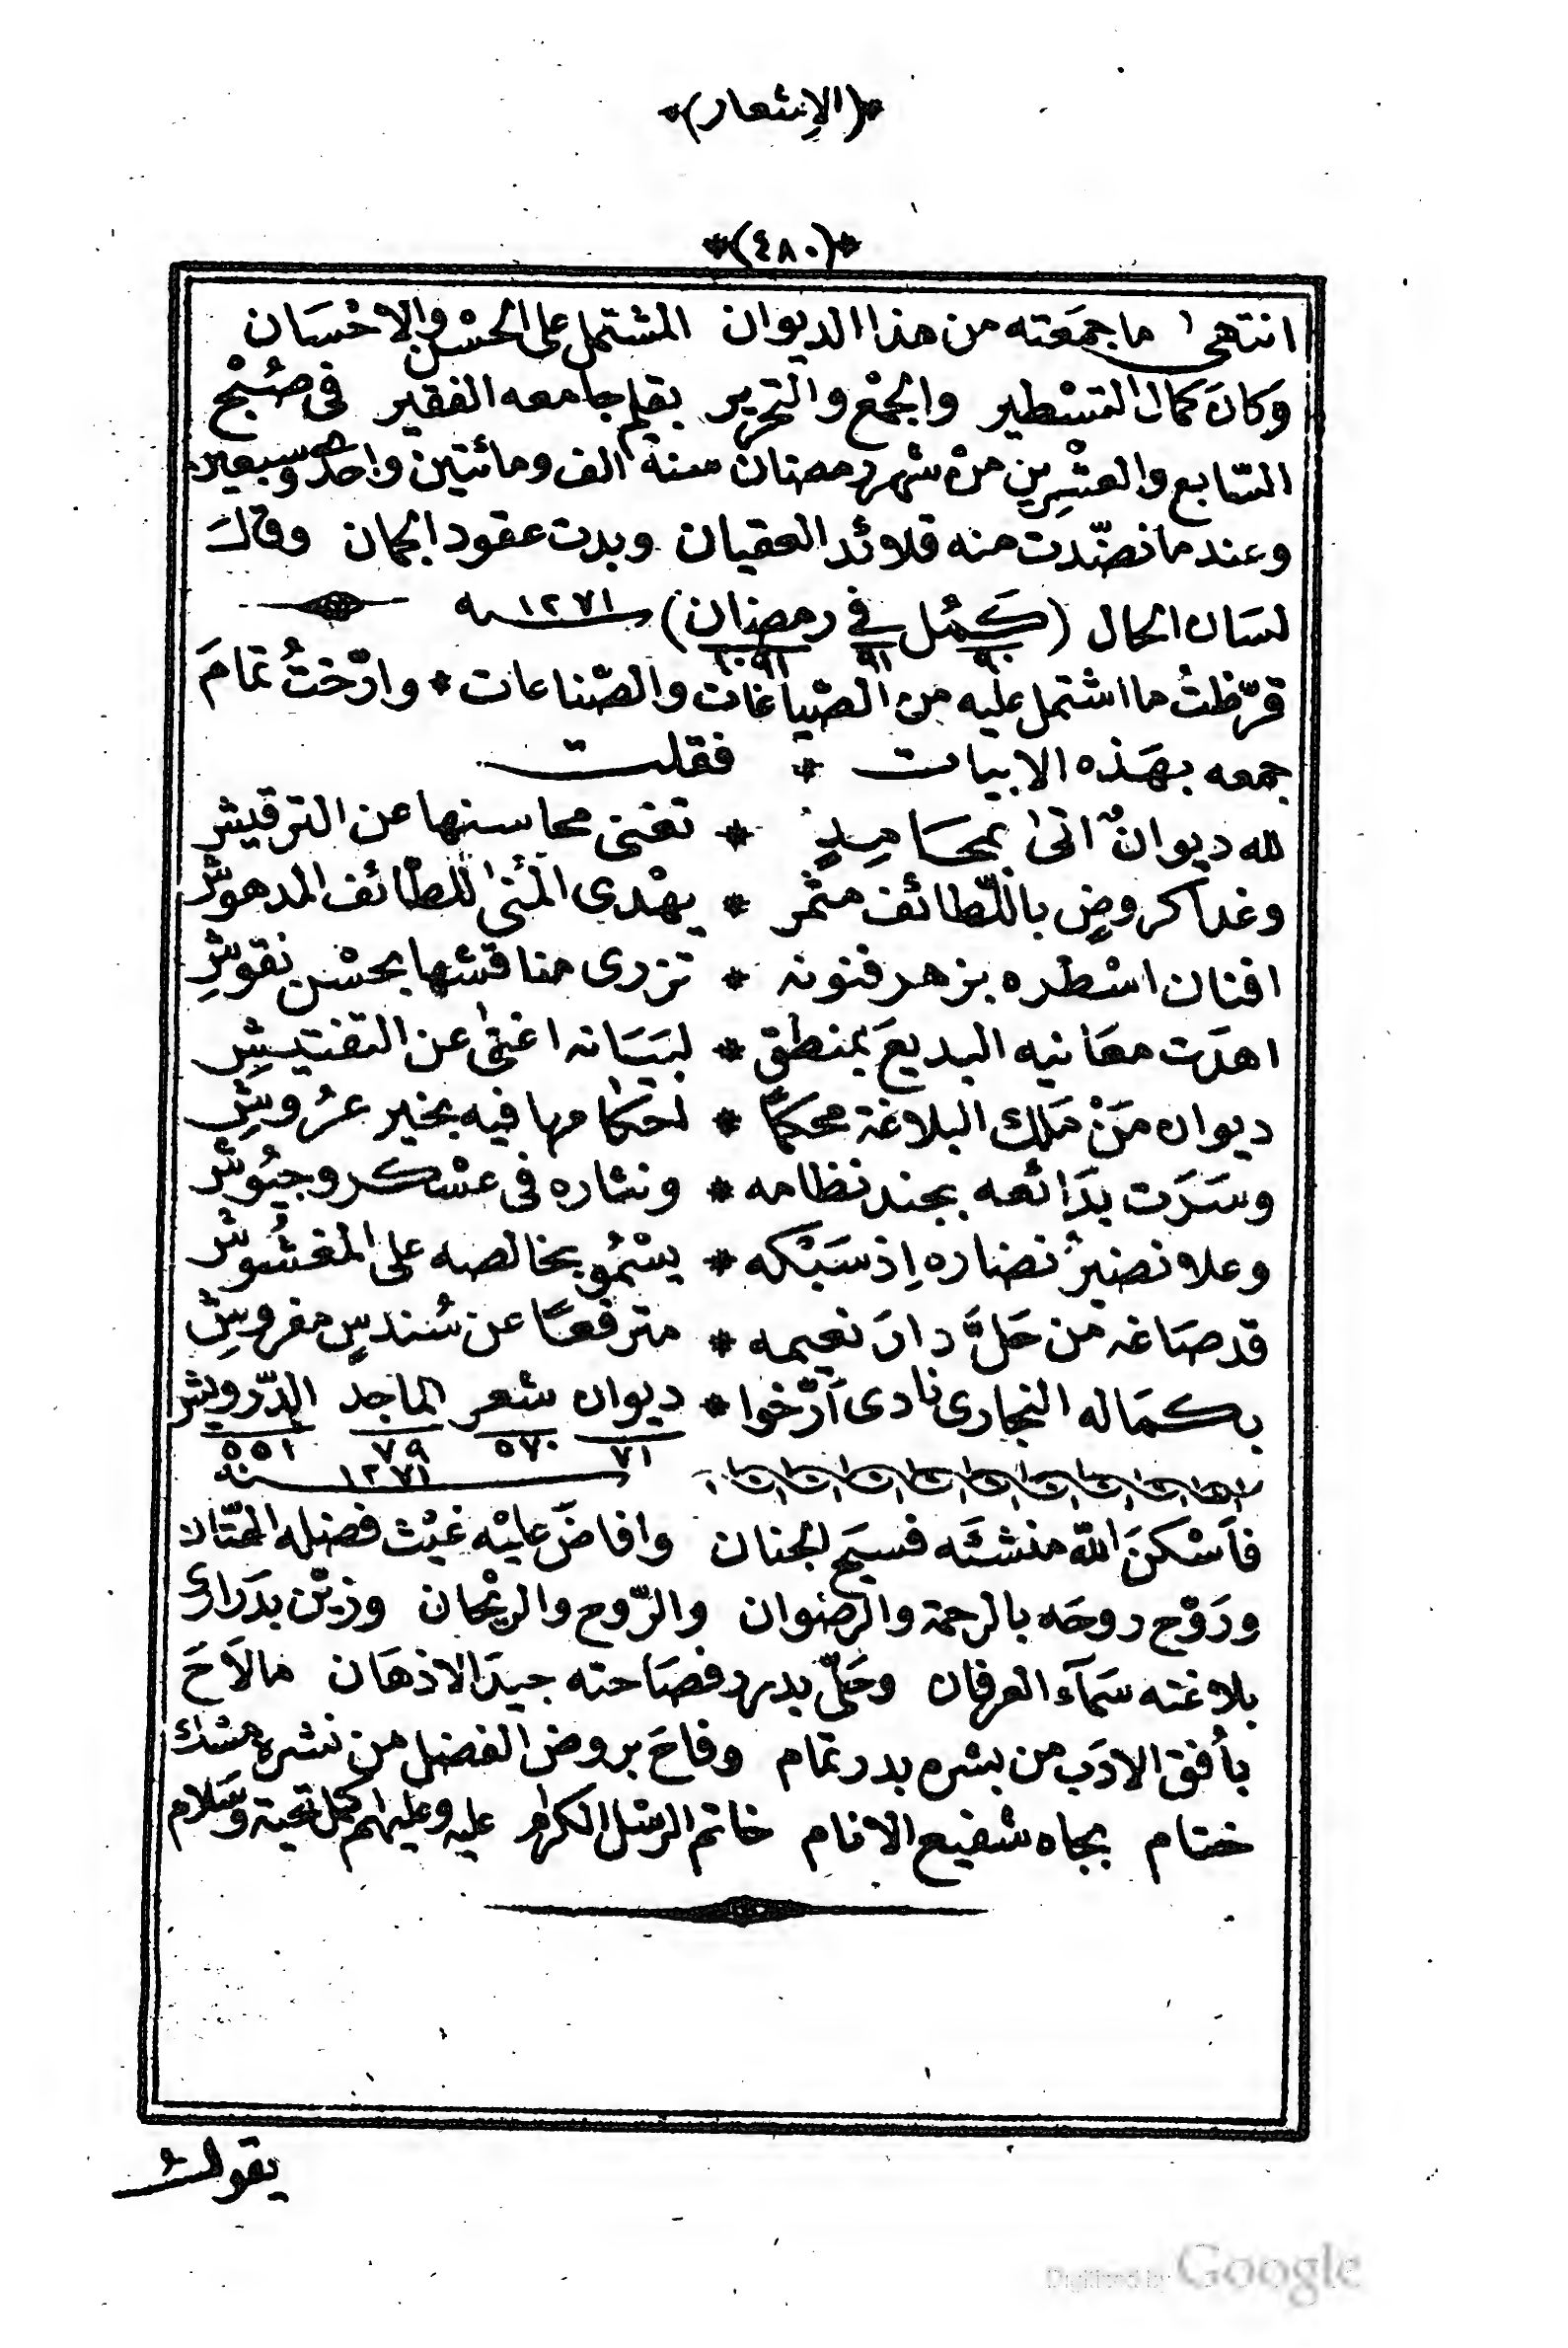 *(الإشعار)*
*(٤٨٠)*
انتهى ما جمَعته من هذا الديوان المشتمل على الحسْن والاحْسَان
وَكانَ كمال التسْطير والجمْع والتحرير بقلم جامعه الفقير فى صُبْح
السّابع والعشْرِين منْ شهر رمضان سنة الف ومائتين واحدى وسبعين
وعند ما نضّدت منه قلائد العقيان وبدت عقود الجمان وقالَ
لسَان الحال (كَمُل في رمضان) سنه ١٢٧١
٩٠ ٩١ ١٠٩١
قرّظتُ ما اشتمل عليه من الصّياغات والصّناعات * وارّختُ تمامَ
جمعه بهَذه الابيات * فقلت
لله ديوانٌ اتىٰ بمحَامِدٍ * تغنى محاسنها عن الترقيش
وغدا كروضٍ باللّطائف مثمر * يهْدى المنى للطائف المدهوشِ
افنان اسْطره بزهر فنونه * تزرى مناقشها بحسْن نقوشِ
اهدَت معَانيه البديعَ بمنطق * لبيَانه اغنىٰ عن التفتيشِ
ديوان مَنْ مَلك البلاغة محكمًا * احكامها فيه بخير عرُوشِ
وسَرَت بدَائعه بجند نظامه * ونثاره فى عسْكر وجيُوشِ
وعلا نضيرُ نضاره اِذ سَبْكه * يسْمُو بخالصه على المغشُوشِ
قد صَاغه من حَلَّ دارَ نعيمه * مترفعًا عن سُندسٍ مفروشِ
بكمَاله النجارى نادى أرّخوا * ديوان شعر الماجد الدّرويش
٧١ ٥٧٠ ٧٩ ٥٥١
سنة ١٢٧١
فأسْكنَ اللّه منشئَه فسيحَ الجنان وافاضَ عليْه غيْث فضله الهتّان
ورَوّح روحَه بالرحمة والرضوان والرّوح والريْحان وزيّن بدَرارى
بلاغته سَمآء العرفان وحَلّى بدرر فصَاحته جيدَ الاذهَان مالاَحَ
بأفق الادَب من بشره بدر تمام وفاحَ بروض الفضل من نشره مسْك
ختام بجاه شفيع الانام خاتم الرسْل الكرام عليه وعليهم اكمل تحية وسَلام
يقول
Digitized by Google